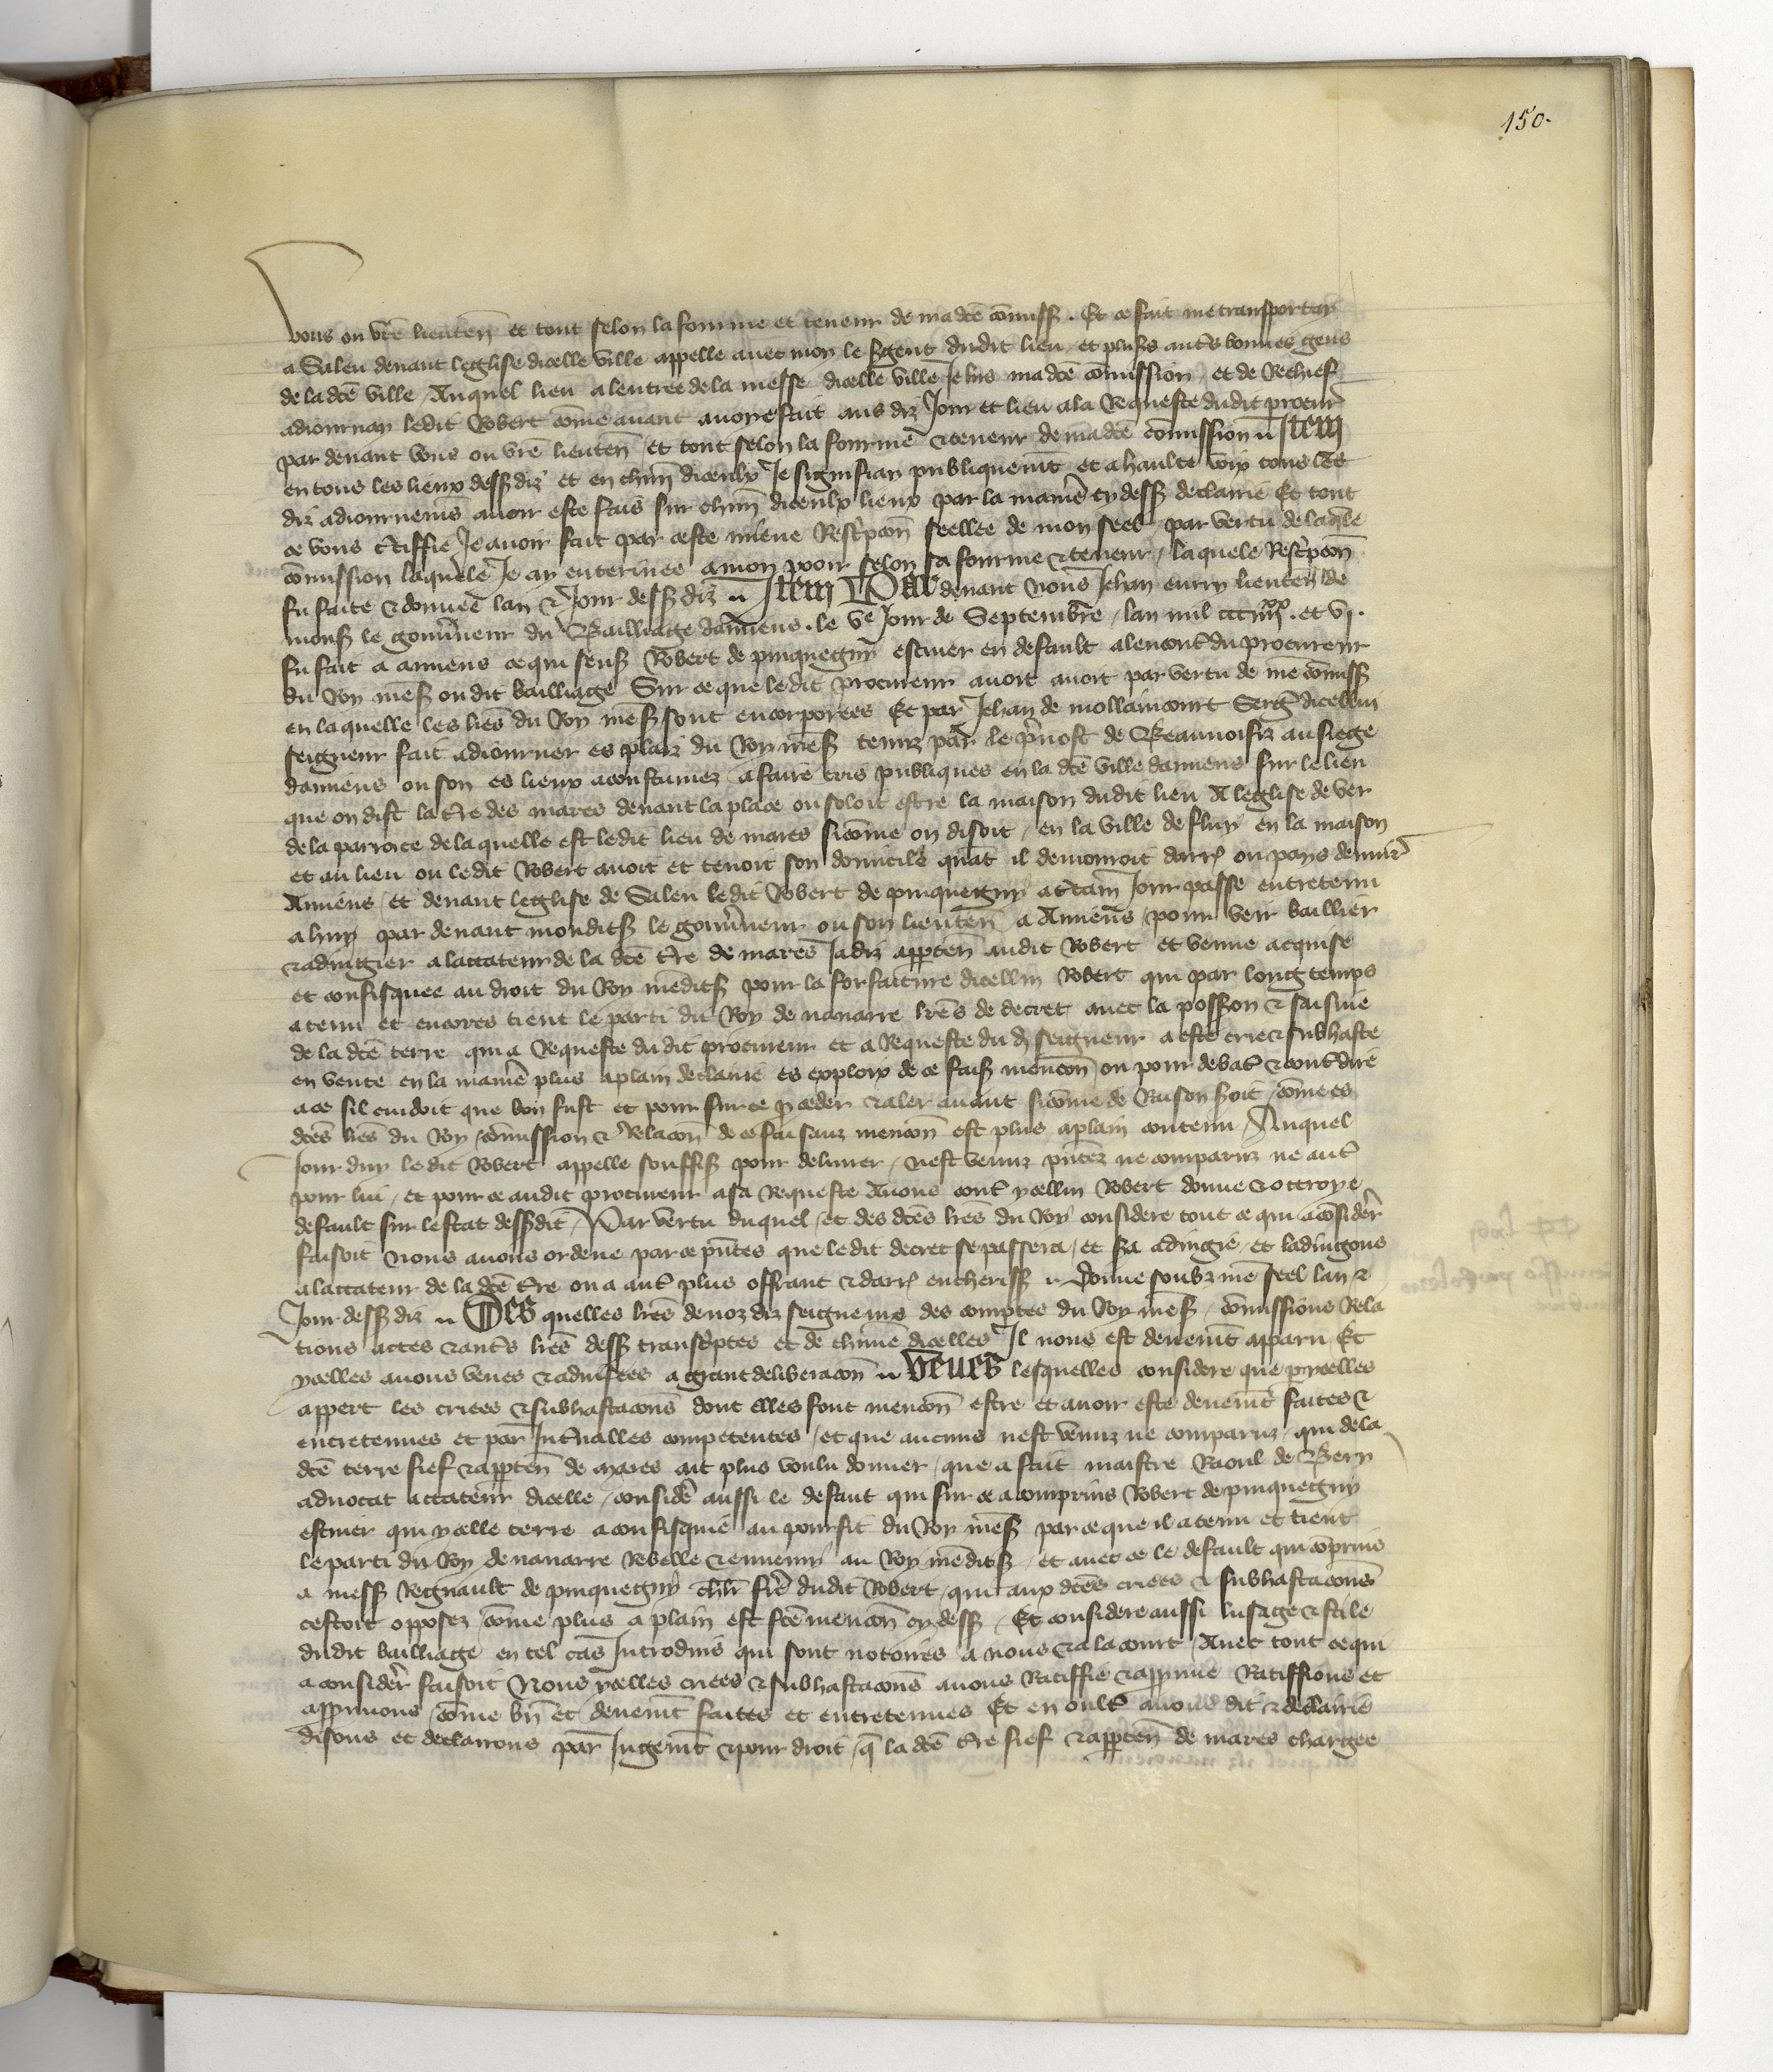 150.
vous ou vre̅ lieuten̅ et tout selon la fourme et teneur de ma dce̅ co̅miss . Et ce fait me transportay
a Saleu devant leglise dicelle ville appelle avec moy le sgent dudit lieu et plus̉s autˢ bonnes gens
de la dce̅ ville / Auquel lieu a lentree de la messe dicelle ville Je lus ma dce̅ co̅mission / et de Rechief
adiournay ledit Robert co̅me avant avoye fait aus diz Jour et lieu a la Requeste dudit procur̉
par devant vous ou vre̅ lieuten̅ et tout selon la fourme & teneur de ma dce̅ co̅mission Item
en tous les lieux dess diz et en chm̅ diceulx Je signifiay publiquemt̅ et a haulte voix tous les
diz adiournemˢ avoir este fais sur chm̅ diceulx lieux par la manie̅ cy dess declairie Et tout
ce vous c̉tiffie Je avoir fait par ceste miene Resc̉pcon̅ seellee de mon seel par vertu de laqle̅
co̅mission laquele Je ay enterinee a mon pooir selon sa fourme & teneur / laquele Resc̉pcon̅
fu faite & donnee lan & Jour dess diz Item Par devant nous Jehan eurry lieuten̅ de
mons le gouv̉neur du Bailliage damiens . le ve Jour de Septembre / lan mil ccciiiixx . et vj .
fu fait a amiens ce qui sens Robert de pinquegny escuier en default alencont̉ du procureur
du Roy mes ou dit bailliage Sur ce que ledit procureur avoit avoit par vertu de me co̅miss
en laquelle les lre̅s du Roy mes sont encorporees Et par Jehan de mollaincourt Serg̉ dicellui
seigneur fait adiourner es plaiz du Roy mes tenuz par le p̉vost de Beauvoisiz au siege
damiens ou son es lieux acoustumez a faire cris publiques en la dce̅ ville damiens sur le lieu
que on dist la tr̉e des mares devant la place ou soloit estre la maison dudit lieu A leglise de ver
de la parroice de laquelle est ledit lieu de mares sico̅me on disoit / en la ville de fluy en la maison
et au lieu ou ledit Robert avoit et tenoit son domicile quat̅ il demouroit darr̉ ou pays denvir̉
Amiens / et devant leglise de Saleu ledit Robert de pinquegny a c̉tain Jour passe entretenu
a huy par devant mondits le gouv̉neur ou son lieuten̅ a Amiens / pour veir baillier
& adiugier a lacateur de la dce̅ tr̉e de mares Jadiz apparten̅ audit Robert et venue acquise
et confisquee au droit du Roy medits pour la forfaiture dicellui Robert qui par long temps
a tenu et encores tient le parti du Roy de navarre lre̅s de decret avec la posson̅ & saisine
de la dce̅ terre qui a Requeste dudit procureur et a Requeste du d̉ seigneur a este criee & subhaste
en vente en la manie̅ plus a plain declairie es explois de ce fais mencon̅ ou pour debat̉ & cont̉dire
a ce sil cuidoit que bon fust et pour sur ce p̉ceder & aler avant sico̅me de Raison soit / co̅me es
dces̅ lre̅s du Roy / co̅mission & Relacon̅ de ce faisanz mencon̅ est plus a plain contenu / Auquel
Jour duy ledit Robert appelle souffis pour delivrer / nest venuz pnt̅ez ne comparuz ne aut̉
pour lui / et pour ce audit procureur a sa Requeste Avons cont̉ ycellui Robert donne & octroye
default sur lestat dessdit / Par vertu duquel / et des dces̅ lre̅s du Roy considere tout ce qui a considr̉
faisoit nous avons ordene par ce pnt̅es que ledit decret se passera / et sa adiugie / et ladiugons
a lacateur de la dce̅ tr̉e ou a aut̉ plus offrant & darr̉ encheriss Donne soubz me̅ seel lan &
Jour dess diz Des quelles lre̅s de noz diz seigneurs des comptes du Roy mes / co̅missions Rela
tions actes & aut̉s lre̅s dess transc̉ptes et de chune̅ dicelles Il nous est deuemt̅ apparu Et
ycelles avons veues & aduisees a grant deliberacon̅ Veues lesquelles considere que p ycelles
appert les criees & subhastacons̅ dont elles font mencon̅ estre et avoir este deuemt̅ faites &
entretenues et par Int̉valles competentes / et que aucuns nest venuz ne comparuz / qui de la
dce̅ terre fief & apparten̅ de mares ait plus voulu donner / que a fait maistre Raoul de Bery
advocat accateur dicelle / consider̉ aussi le defaut qui sur ce a comprins Robert de pinquegny
escuier qui ycelle terre a confisquie au pourfit du Roy mes par ce que il a tenu et tient
le parti du Roy de navarre Rebelle & ennemy au Roy medits / et avec ce le default qui co̅prins
a mess Regnault de pinquegny chlr̅ fre̅ dudit Robert / qui aux dces̅ criees & subhastacons̅
cestoit opposez / co̅me plus a plain est fce̅ mencon̅ cy dess / Et considere aussi lusage & stile
dudit bailliage en tel cas Introduis qui sont notoires a nous & a la court / Avec tout ce qui
a considr̉ faisoit Nous ycelles criees & subhastacons̅ avons Ratiffie & appruve Ratiffions et
appruvons / co̅me bn̅ et deuemt̅ faites et entretenues Et en oult̉ avons dit & declairie
disons et declairons par Jugemt̅ & pour droit / q̅ la dce̅ tr̉e fief & apparten̅ de mares chargee